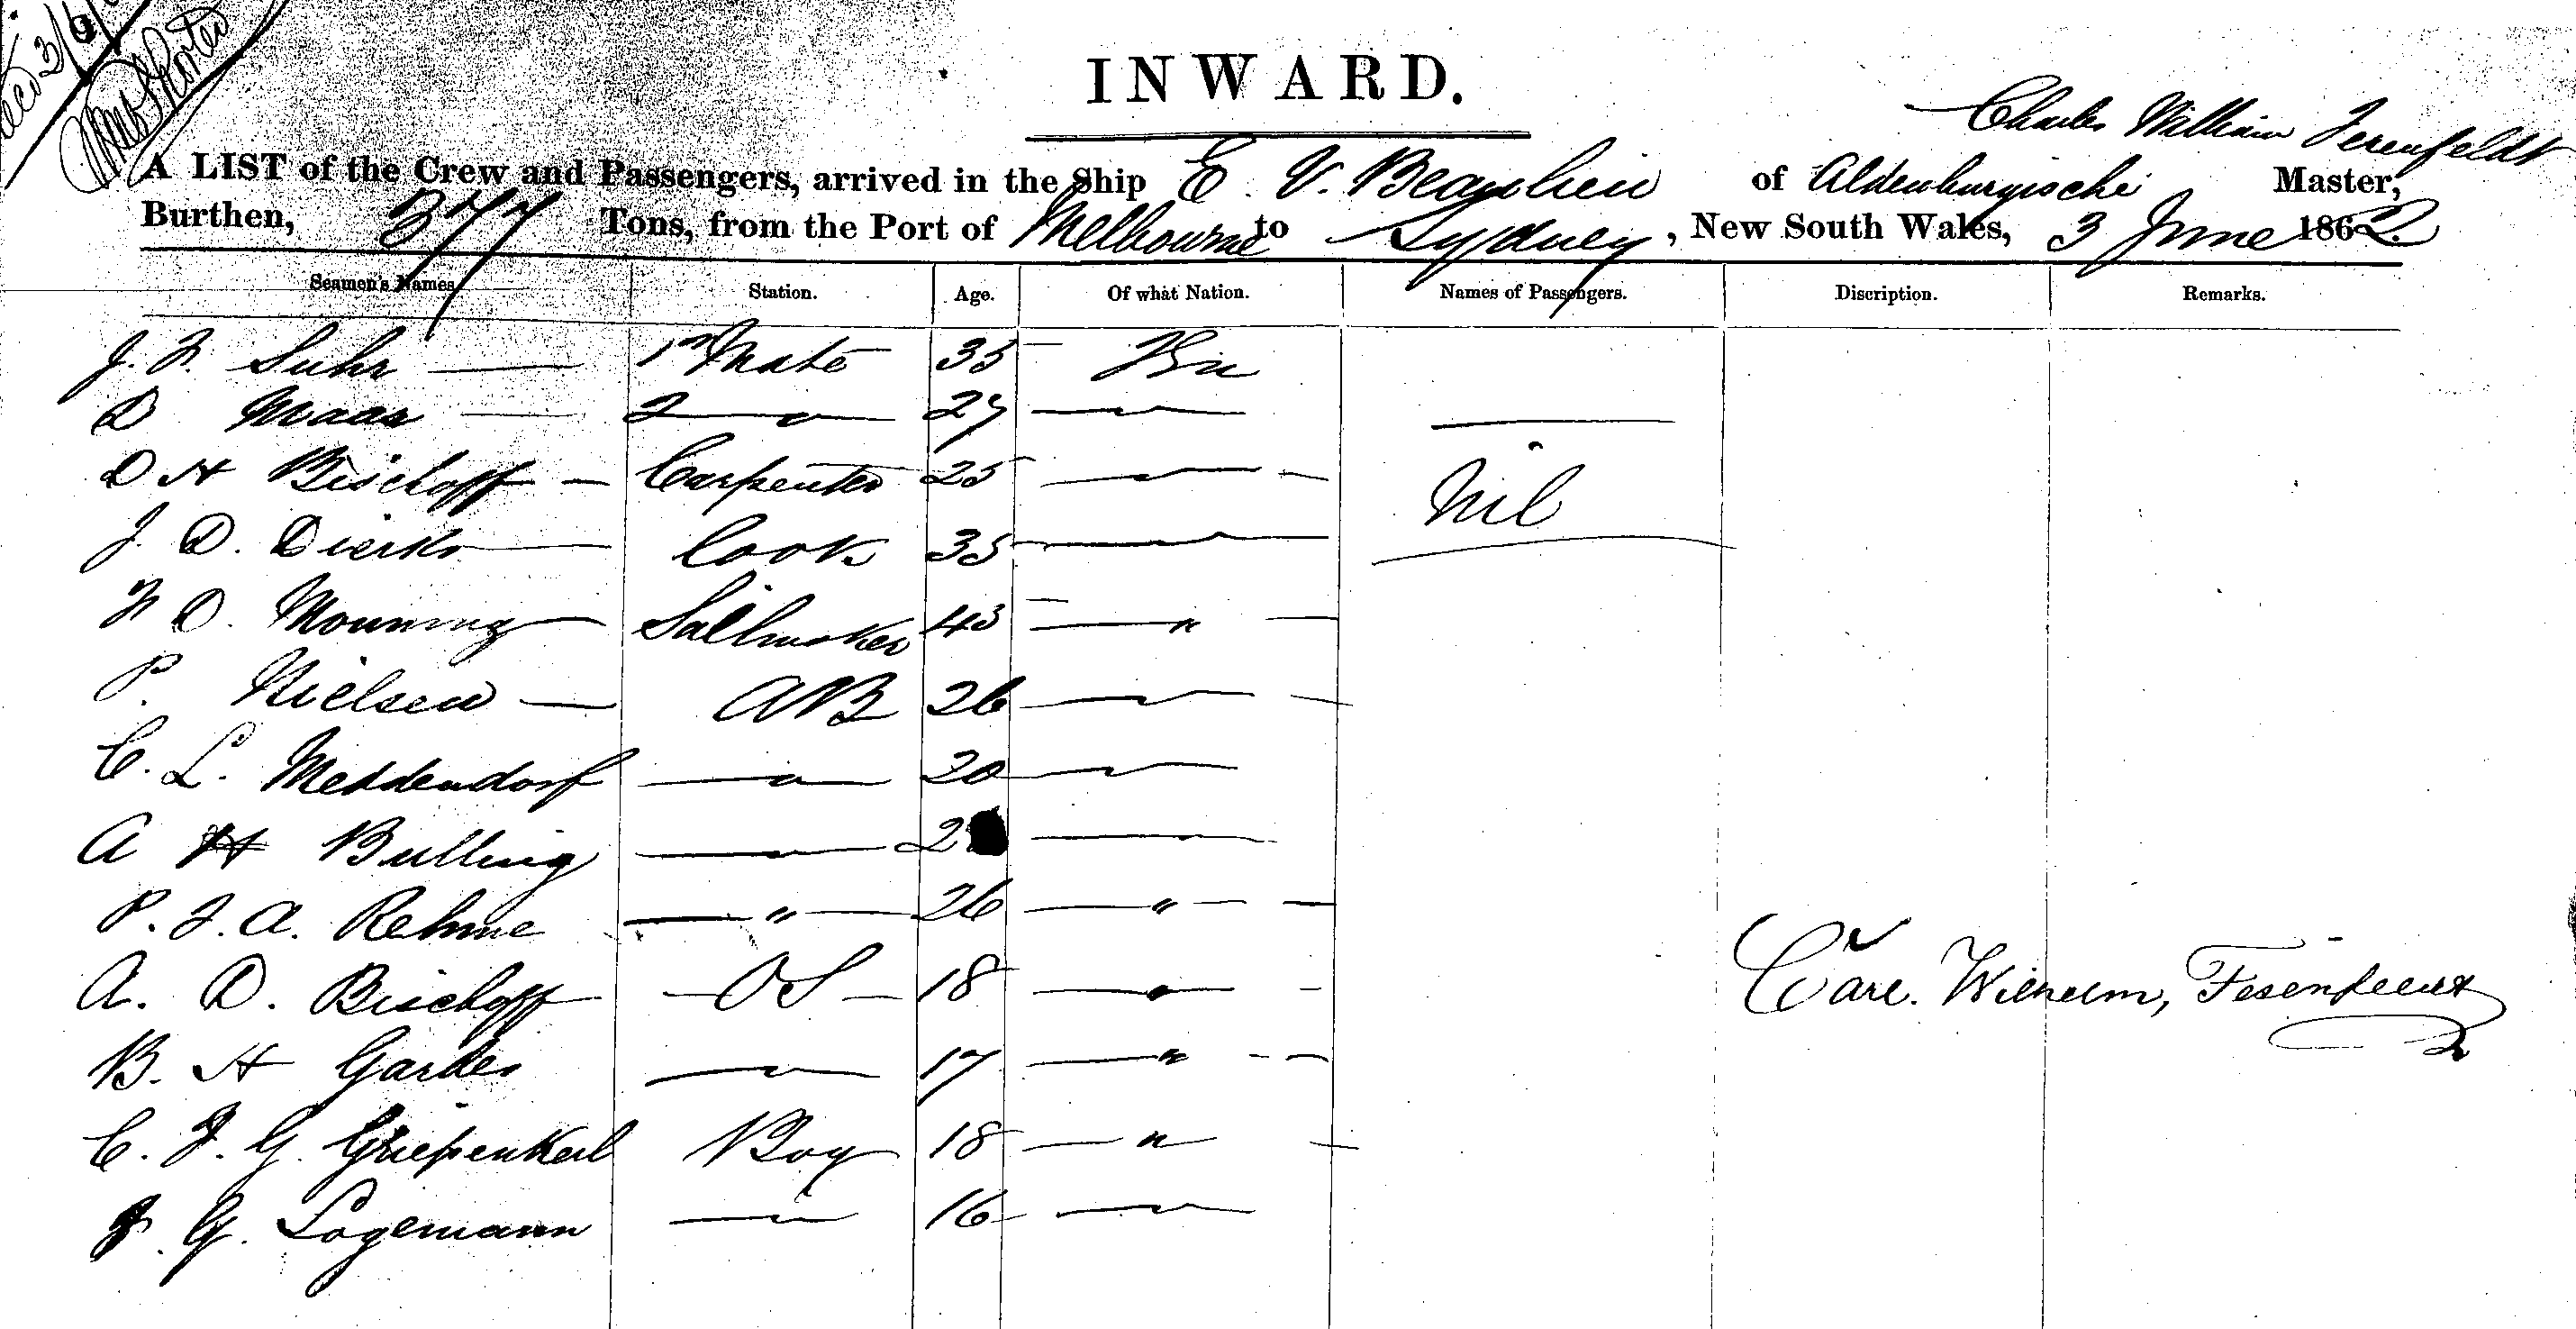 INWARD.
Charles William
A LIST of the Crew and Passengers, arrived in the Ship E. V. Beaulieu of Aldenburgische Master,
Burthen, 377 Tons, from the Port of Melbourne to Sydney, New South Wales, 3 June 1862.
Seamen's Names Station. Age. Of what Nation. Names of Passengers. Discription. Remarks.
J. F. Suhr — 1st Mate 35
D Maas — 2 — " — 27 — " —
D H Bischoff — Carpenter 25 — " —
Nil
J. D. Dierks — Cook 35 — " —
F D. Monning — Sailmaker 43 — " —
P. Nielsen — AB 26 — " —
C. L. Meddendorf — " — 20 — " —
A H Bulling — " — 2 — " —
P. F. A. Rehme — " — 26 — " —
A. D. Bischoff — OS — 18 — " —
Carl. Wilhelm,
B. H Gardes — " — 17 — " —
C. F. G. Griepenkerl Boy 18 — " —
J. G. Logemann — " — 16 — " —